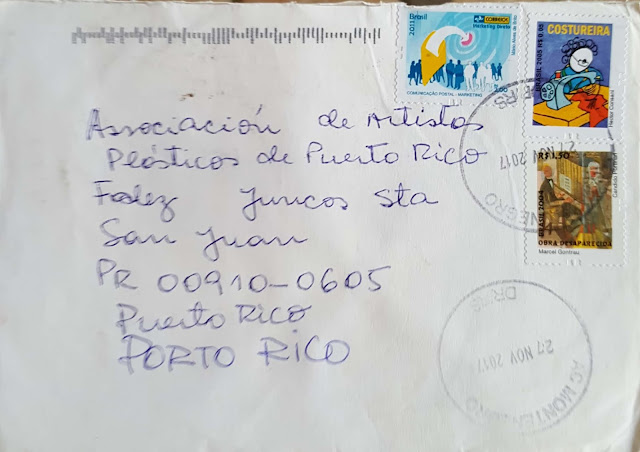 Brasil 2011
CORREIOS
Marketing Direto
COMUNICAÇÃO POSTAL - MARKETING
COSTUREIRA
BRASIL 2005 R$ 0.05
R$ 1,50
BRASIL 2004
OBRA DESAPARECIDA
Marcel Gontrau
Associación de Artistas
Plásticos de Puerto Rico
Fadez Juncos Sta
San Juan
PR 00910-0605
Puerto Rico
PORTO RICO
27 NOV 2017
NEGRO
DR/RS
27 NOV 2017
AC MONTENEGRO